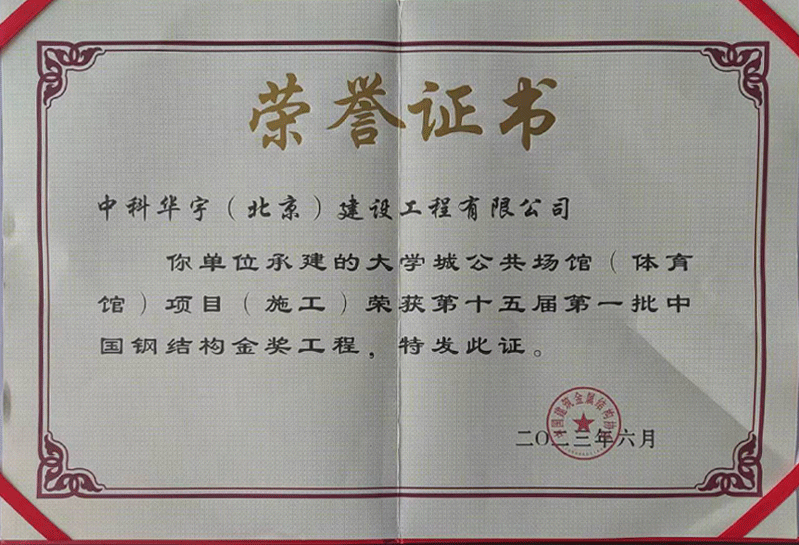 荣誉证书
中科华宇（北京）建设工程有限公司
你单位承建的大学城公共场馆（体育
馆）项目（施工）荣获第十五届第一批中
国钢结构金奖工程，特发此证。
中国建筑金属结构协会
二〇二三年六月